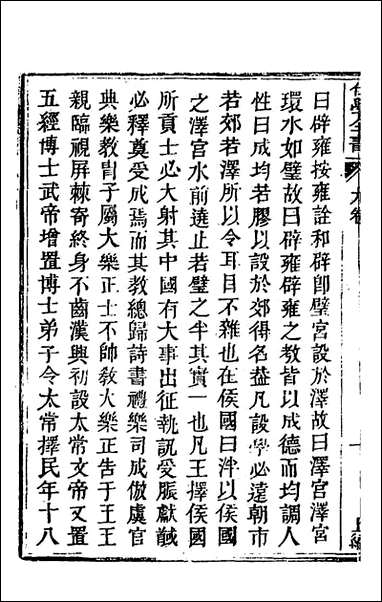 曰辟雍按雍詮和辟卽璧宮設於澤故曰澤宮澤宮
環水如璧故曰辟雍辟雍之教皆以成德而均調人
性曰成均若膠以設於郊得名葢凡設學必遠朝市
若郊若澤所以令耳目不雜也在侯國曰泮以侯國
之澤宮水前遶止若璧之半其實一也凡王擇侯國
所貢士必大射其中國有大事出征執訊受脤獻馘
必釋奠受成焉而其教總歸詩書禮樂司成倣虞官
典樂教胄子屬大樂正士不帥教大樂正告于王王
親臨視屏棘寄終身不齒漢興初設太常文帝又置
五經博士武帝增置博士弟子令太常擇民年十八